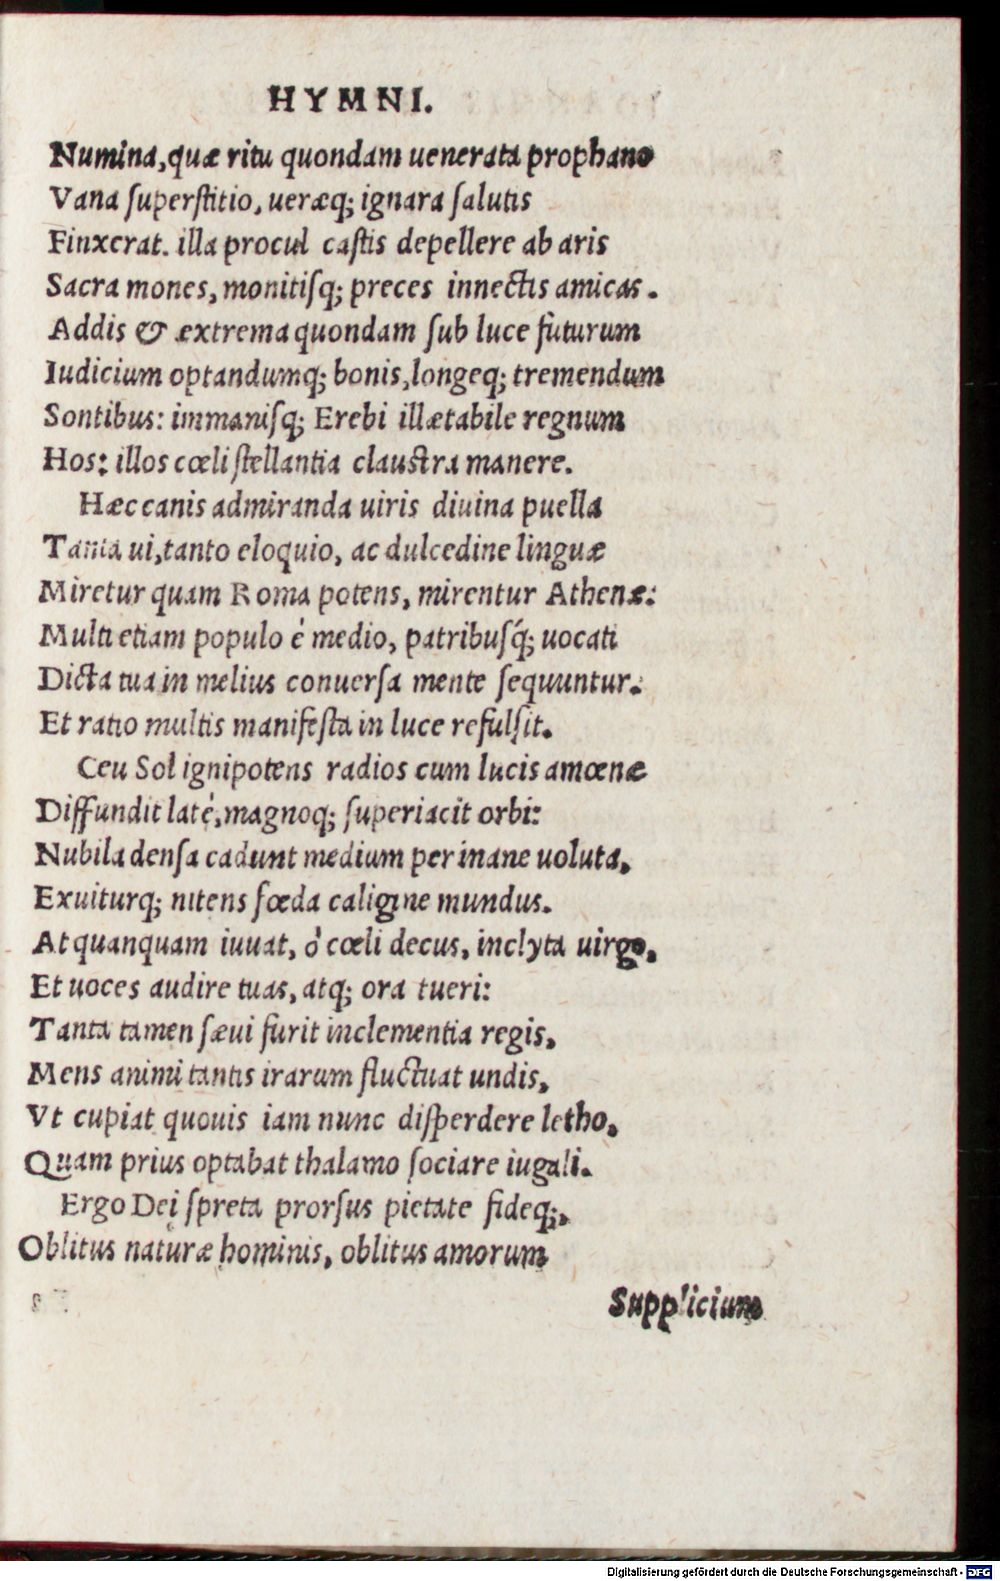 HYMNI.
Numina, quæ ritu quondam uenerata prophano
Vana ſuperſtitio, ueræq; ignara ſalutis
Finxerat. illa procul caſtis depellere ab aris
Sacra mones, monitiſq; preces innectis amicas.
Addis & æxtrema quondam ſub luce futurum
Iudicium optandumq; bonis, longeq; tremendum
Sontibus: immaniſq; Erebi illætabile regnum
Hos: illos cœli ſtellantia clauſtra manere.
Hæc canis admiranda uiris diuina puella
Tanta ui, tanto eloquio, ac dulcedine linguæ
Miretur quam Roma potens, mirentur Athenæ:
Multi etiam populo é medio, patribuſq́; uocati
Dicta tua in melius conuerſa mente ſequuntur.
Et ratio multis manifeſta in luce refulſit.
Ceu Sol ignipotens radios cum lucis amœnæ
Diffundit laté, magnoq; ſuperiacit orbi:
Nubila denſa cadunt medium per inane uoluta,
Exuiturq; nitens fœda caligine mundus.
At quanquam iuuat, ó cœli decus, inclyta uirgo,
Et uoces audire tuas, atq; ora tueri:
Tanta tamen ſæui furit inclementia regis,
Mens animi tantis irarum fluctuat undis,
Vt cupiat quouis iam nunc diſperdere letho,
Quam prius optabat thalamo ſociare iugali.
Ergo Dei ſpreta prorſus pietate fideq;,
Oblitus naturæ hominis, oblitus amorum
Supplicium
Digitalisierung gefördert durch die Deutsche Forschungsgemeinschaft - DFG